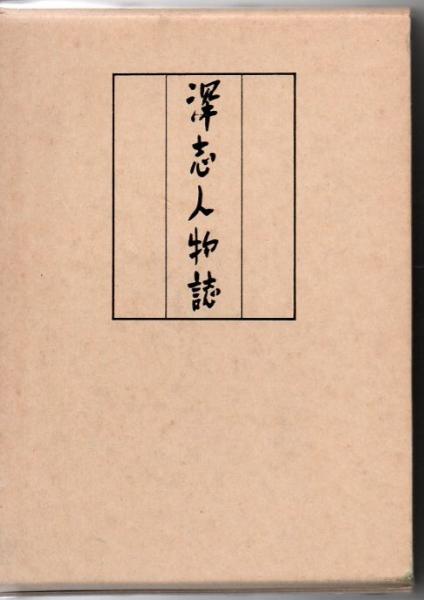 深志人物誌